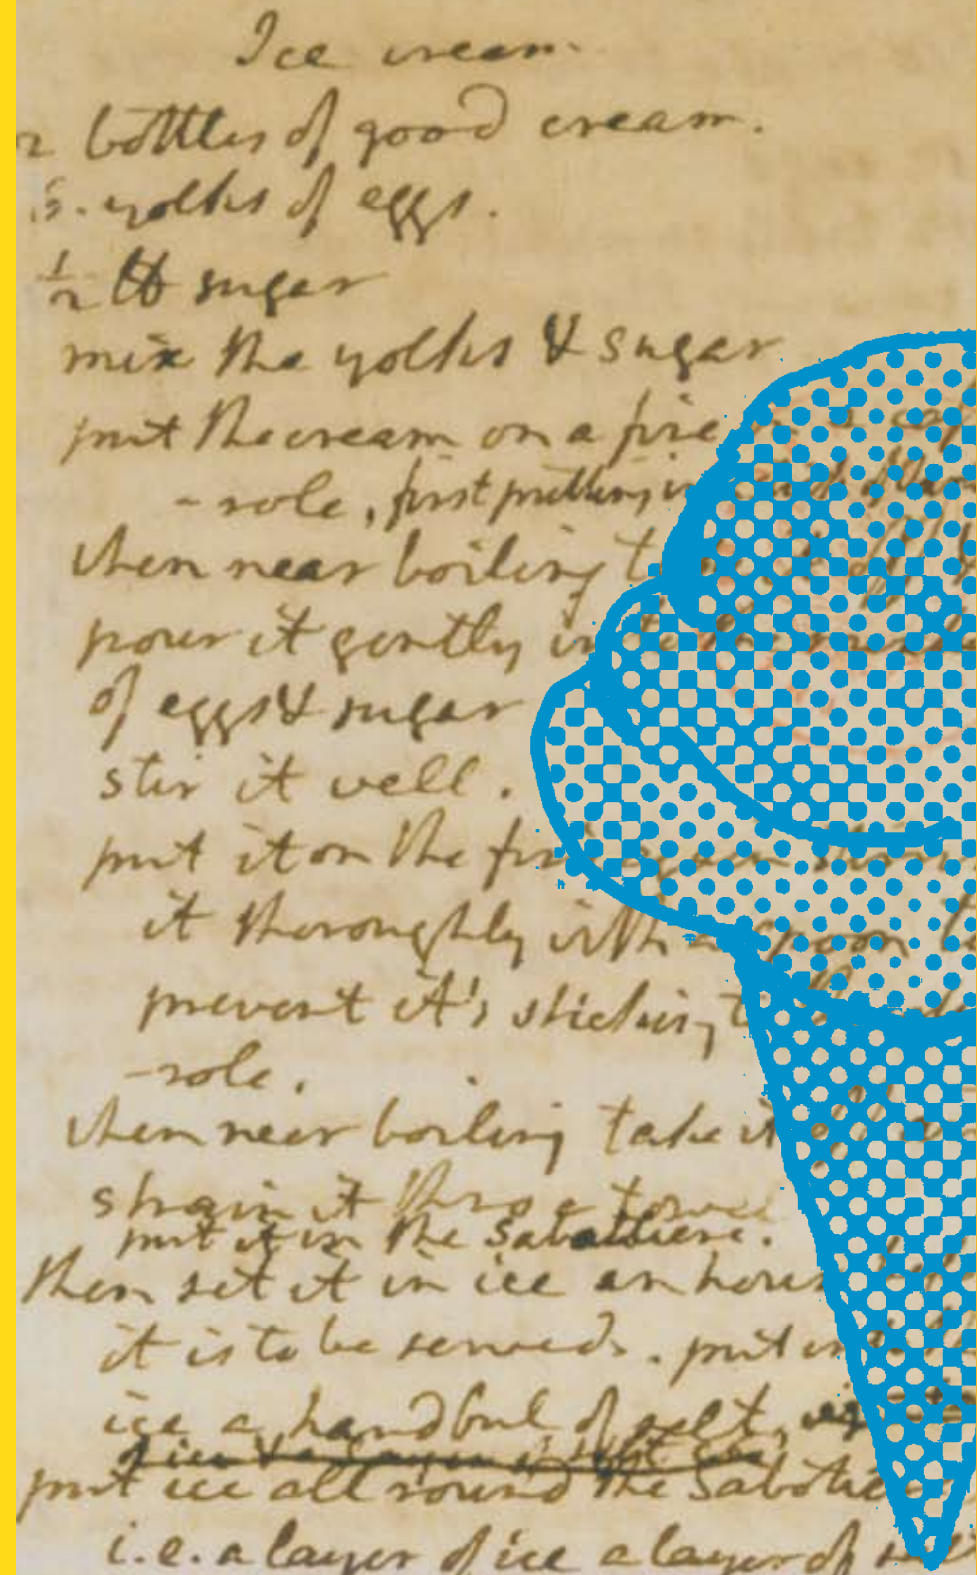 Ice cream.
2 bottles of good cream.
6. yolks of eggs.
1/2 lb sugar
mix the yolks & sugar
put the cream on a fire
-role, first putting in
when near boiling
pour it gently
of eggs & sugar
stir it well.
put it on the
it thoroughly with a spoon
prevent it's sticking
-role.
when near boiling take it
strain it thro' a towel
put it in the Sabottiere.
then set it in ice an hour
it is to be served. put in
ice a handful of salt,
put ice all round the Sabotie
i.e. a layer of ice a layer of